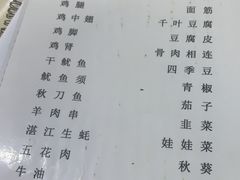 鸡腿
鸡中翅
鸡脚
鸡肾
干鱿鱼
鱿鱼须
秋刀鱼
羊肉串
湛江生蚝
五花肉
牛油
面筋
千叶豆腐
豆腐皮
骨肉相连
四季豆
青椒
茄子
韭菜
娃娃菜
秋葵